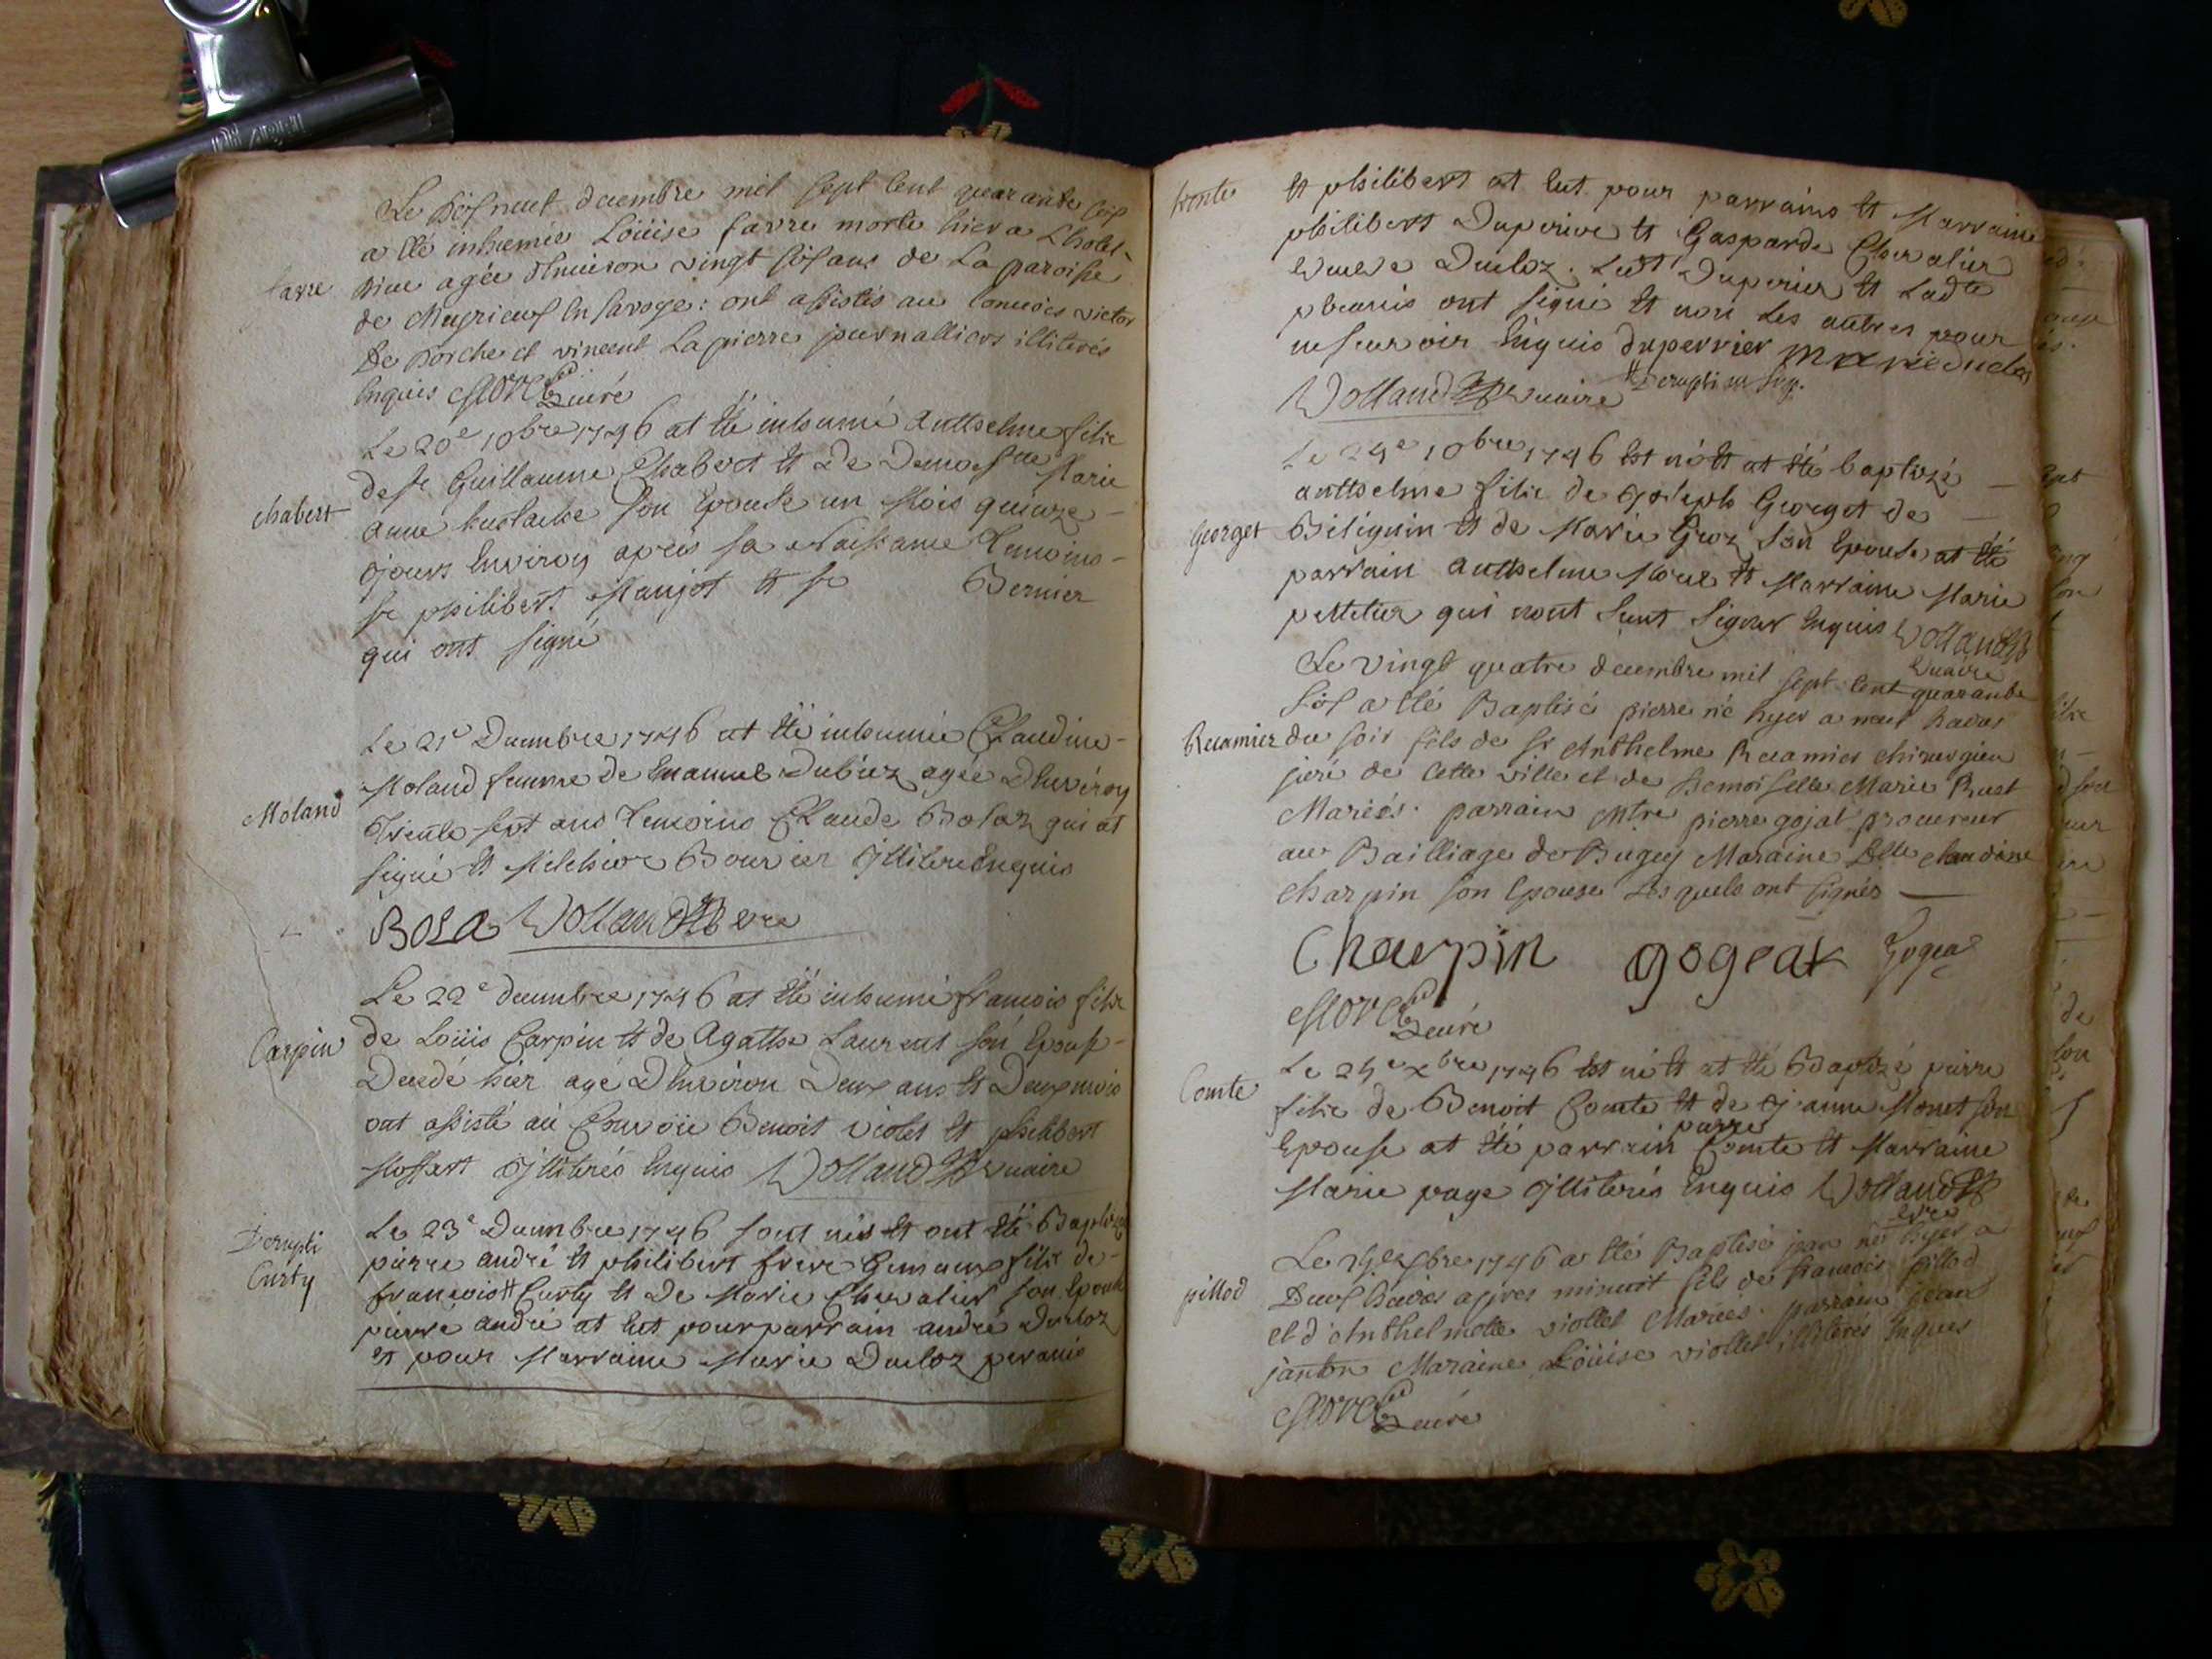 Le dix neuf decembre mil sept cent quarante six
a été inhumée Loüise favre morte hier a Lhotel
Favre
Dieu agée d'environ vingt six ans de La paroisse
de Meyrieux en Savoye : ont assistés au convoies victor
De porche et vincent Lapierre journalliers illiterés
Enquis curé
Le 20e 10bre 1746 at été inhumé Anthelme filie
de sr Guillaume Chabert et de Demoiselle Marie
Chabert
anne Eustache son Epouse un Mois quinze
jours Environ après sa Naissance Temoins
sr philibert Maujot et sr Bernier
qui ont signé
Le 21e Decembre 1746 at été inhumée Claudine
Moland femme de Emanuel Dubiez agée D'Environ
Moland
Trente sept ans Temoins Claude Bolaz qui at
signé et Melchior Bouvier Illiteré Enquis
BOLA Wolland vre
Le 22e decembre 1746 at été inhumé françois filie
Carpin
de Loüis Carpin et de Agathe Laurent son Epouse
Decedé hier agé D'Environ Deux ans et Deux mois
ont assisté au Convoïe Benoit violet et philibert
Mossart Illiterés Enquis Wolland vicaire
Le 23e Decembre 1746 sont nés et ont été Baptizé
Derupti
Curty
pierre andré et philibert frere Gemeaux filie de
françois # Curty et De Marie Chevalier son Epouse
pierre andré at Eut pour parrain andré Ducloz
et pour Marraine Marie Ducloz pernuis
et philibert at Eut pour parrains et Marraine
philibert Duperier et Gasparde Chevalier
veuve Ducloz. Ledt Duperier et Ladte
pernuis ont signé et non Les autres pour
ne scavoir Enquis duperrier marie duclos
Wolland vicaire # Derupti
Le 24e 10bre 1746 Est né et at été baptizé
anthelme filie de Joseph Georget de
Georget
Beliguin et de Marie Groz son Epouse at été
parrain anthelme Morel et Marraine Marie
pelletier qui n'ont sceut signer Enquis Wolland
vicaire
Le vingt quatre decembre mil sept cent quarante
six a été Baptisé pierre né hyer a neuf heures
Recamier
du soir fils de sr Anthelme Recamier chirurgien
juré de Cette ville et de Demoiselle Marie Ruet
Mariés. parrain Mtre pierre gojat procureur
au Bailliage de Bugey Maraine Delle claudine
charpin son Epouse Lesquels ont signés
Charpin gogeat Gogeat
curé
Le 24e xbre 1746 Est né et at été Baptizé pierre
Comte
filie de Benoit Comte et de Janne Monet son
Epouse at été parrain pierre Comte et Marraine
Marie page Illiterés Enquis Wolland
vre
Le 25e xbre 1746 a été Baptisé jean né hyer a
pillod
Deux heures apres minuit fils de francois pillod
et d'Anthelmette viollet Mariés. parrain jean
janton Maraine Loüise viollet illiterés Enquis
curé